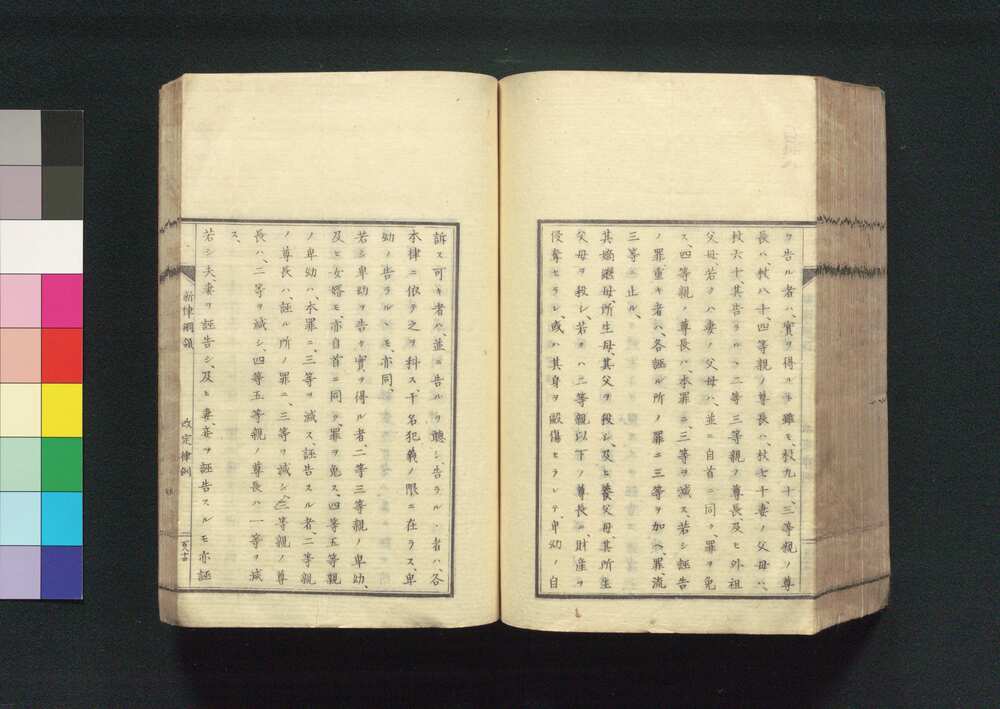 ヲ告ル者ハ、實ヲ得ルト雖モ、杖九十、三等親ノ尊
長ハ、杖八十、四等親ノ尊長ハ、杖七十、妻ノ父母ハ、
杖六十、其告ラルヽ二等三等親ノ尊長、及ヒ外祖
父母、若クハ妻ノ父母ハ、並ニ自首ニ同ク、罪ヲ免
ス、四等親ノ尊長ハ、本罪ニ三等ヲ減ス、若シ誣告
ノ罪重キ者ハ、各誣ル所ノ罪ニ三等ヲ加ヘ、罪、流
三等ニ止ル、
其嫡繼母、所生母、其父ヲ殺シ、及ヒ養父母、其所生
父母ヲ殺シ、若クハ二等親以下ノ尊長ニ、財産ヲ
侵奪セラレ、或ハ其身ヲ毆傷セラレテ、卑幼ノ自
訴ス可キ者ハ、並ニ告ルヿヲ聽シ告ラルヽ者ハ、各
本律ニ依テ之ヲ科ス、干名犯義ノ限ニ在ラス、卑
幼ノ告ラルヽモ、亦同、
若シ卑幼ヲ告ケ實ヲ得ル者、二等三等親ノ卑幼、
及ヒ女婿モ、亦自首ニ同ク、罪ヲ免ス、四等五等親
ノ卑幼ハ、本罪ニ三等ヲ減ス、誣告スル者、二等親
ノ尊長ハ、誣ル所ノ罪ニ、三等ヲ減シ、三等親ノ尊
長ハ、二等ヲ減シ、四等五等親ノ尊長ハ一等ヲ減
ス、
若シ夫、妻ヲ誣告シ、及ヒ妻、妾ヲ誣告スルモ亦誣
新律綱領 改定律例